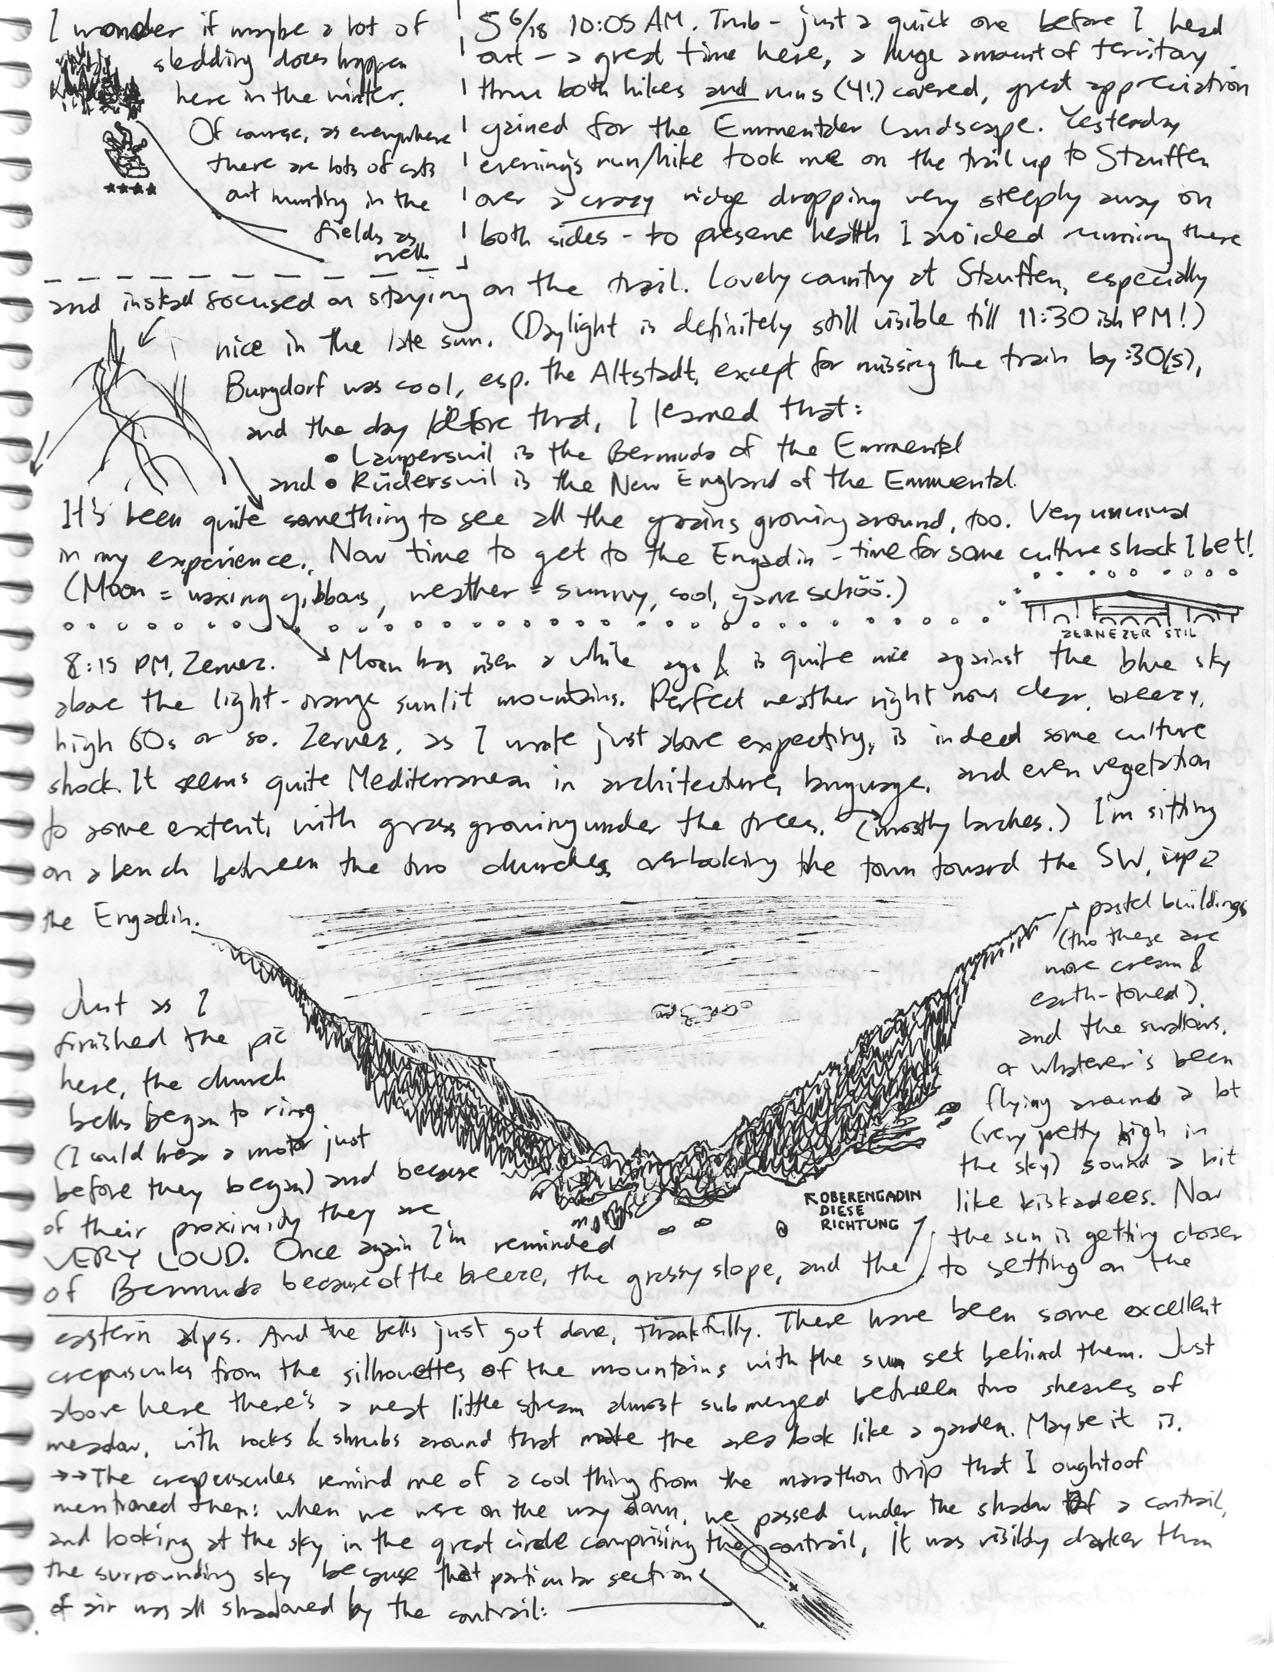 I wonder if maybe a lot of
sledding does happen
here in the winter.
Of course, as everywhere
there are lots of cats
out hunting in the
fields as
well
S 6/18 10:05 AM. Trub - just a quick one before I head
out - a great time here, a huge amount of territory
thru both hikes and runs (4!) covered, great appreciation
gained for the Emmentaler landscape. Yesterday
evening's run/hike took me on the trail up to Stauffen
over a crazy ridge dropping very steeply away on
both sides - to preserve health I avoided running there
and instead focused on staying on the trail. Lovely country at Stauffen, especially
nice in the late sun. (Daylight is definitely still visible till 11:30 ish PM!)
Burgdorf was cool, esp. the Altstadt, except for missing the train by :30(s),
and the day before that, I learned that:
• Lauperswil is the Bermuda of the Emmental
and • Rüderswil is the New England of the Emmental.
It's been quite something to see all the grains growing around, too. Very unusual
in my experience. Now time to get to the Engadin - time for some culture shock I bet!
(Moon = waxing gibbous, weather = sunny, cool, ganz schöö.)
ZERNEZER STIL
8:15 PM, Zernez. → Moon has risen a while ago & is quite nice against the blue sky
above the light-orange sunlit mountains. Perfect weather right now clear, breezy,
high 60s or so. Zernez, as I wrote just above expecting, is indeed some culture
shock. It seems quite Mediterranean in architecture, language, and even vegetation
to some extent, with grass growing under the trees. (mostly larches.) I'm sitting
on a bench between the two churches, overlooking the town toward the SW, up
the Engadin.
pastel buildings
(tho these are
more cream &
earth-toned).
and the swallows,
or whatever's been
flying around a lot
(very pretty high in
the sky) sound a bit
like kiskadees. Now
the sun is getting closer
to setting on the
Just as I
finished the pic
here, the church
bells began to ring
(I could hear a motor just
before they began) and because
of their proximity they are
VERY LOUD. Once again I'm reminded
of Bermuda because of the breeze, the grassy slope, and the
OBERENGADIN
DIESE
RICHTUNG
eastern alps. And the bells just got done, thankfully. There have been some excellent
crepuscules from the silhouettes of the mountains with the sun set behind them. Just
above here there's a neat little stream almost submerged between two sheaves of
meadow, with rocks & shrubs around that make the area look like a garden. Maybe it is.
→→The crepuscules remind me of a cool thing from the marathon trip that I oughtof
mentioned then: when we were on the way down, we passed under the shadow of a contrail,
and looking at the sky in the great circle comprising the contrail, it was visibly darker than
the surrounding sky because that particular section
of air was all shadowed by the contrail: